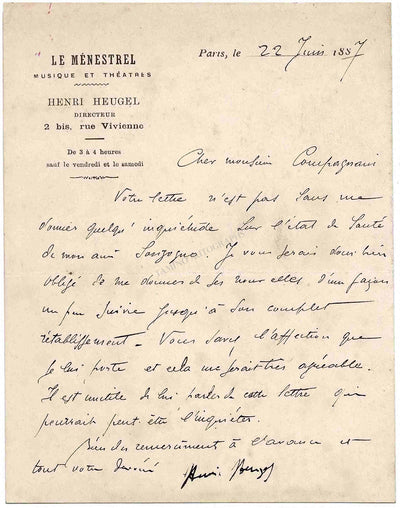 LE MÉNESTREL
MUSIQUE ET THÉATRES
HENRI HEUGEL
DIRECTEUR
2 bis, rue Vivienne
De 3 à 4 heures
sauf le vendredi et le samedi
Paris, le 22 Juin 1887
Cher monsieur
Votre lettre n'est pas sans me
donner quelqu' inquiétude sur l'état de santé
de mon ami Sonzogno. Je vous serais donc bien
obligé de me donner de ses nouvelles, d'une façon
un peu suivie jusqu'à son complet
rétablissement - Vous savez l'affection que
je lui porte et cela me serait très agréable.
Il est inutile de lui parler de cette lettre qui
pourrait peut être l'inquiéter.
Bien des remerciement à l'avance et
tout votre dévoué
Henri Heugel